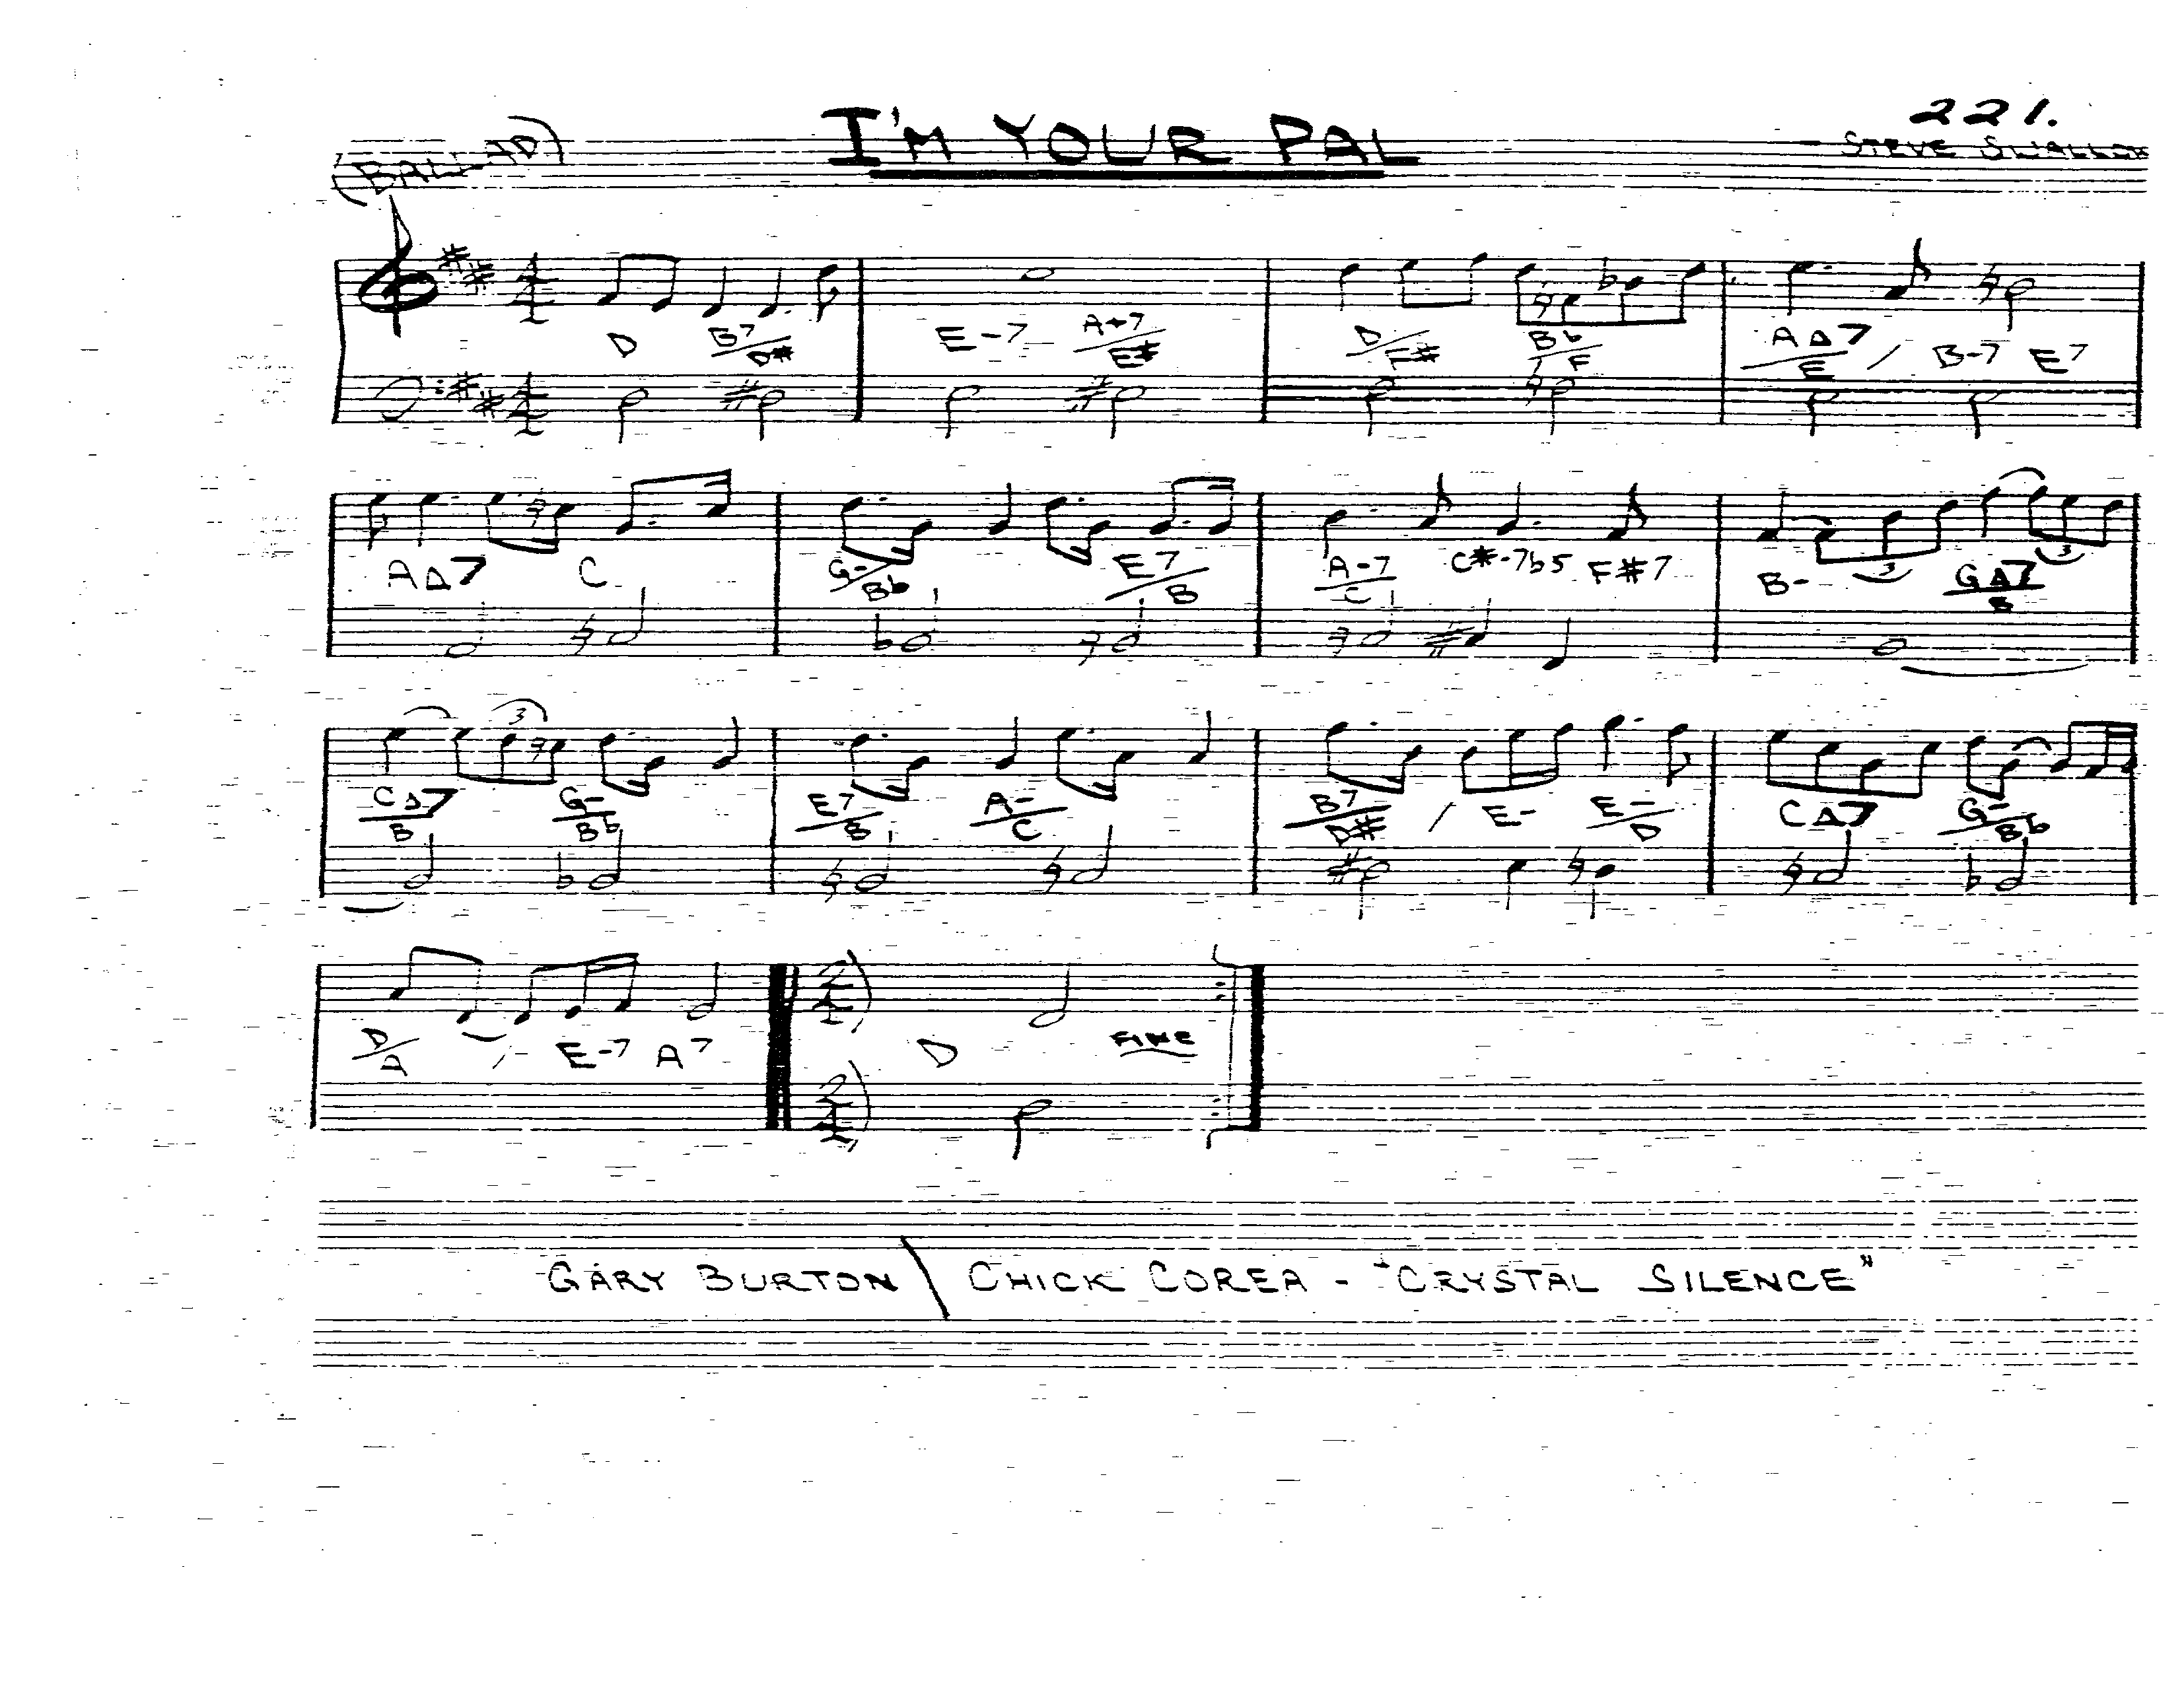 221.
I'M YOUR PAL
(BALLAD)
STEVE SWALLOW
D B7/D# E-7 A+7/E# D/F# Bb/F AΔ7/E / B-7 E7
AΔ7 C G-/Bb E7/B A-7/C C#-7b5 F#7 B- GΔ7/B
3 3
3
CΔ7/B G-/Bb E7/B A-/C B7/D# / E- E-/D CΔ7 G-/Bb
D/A / E-7 A7 D FINE
GARY BURTON \ CHICK COREA - "CRYSTAL SILENCE"